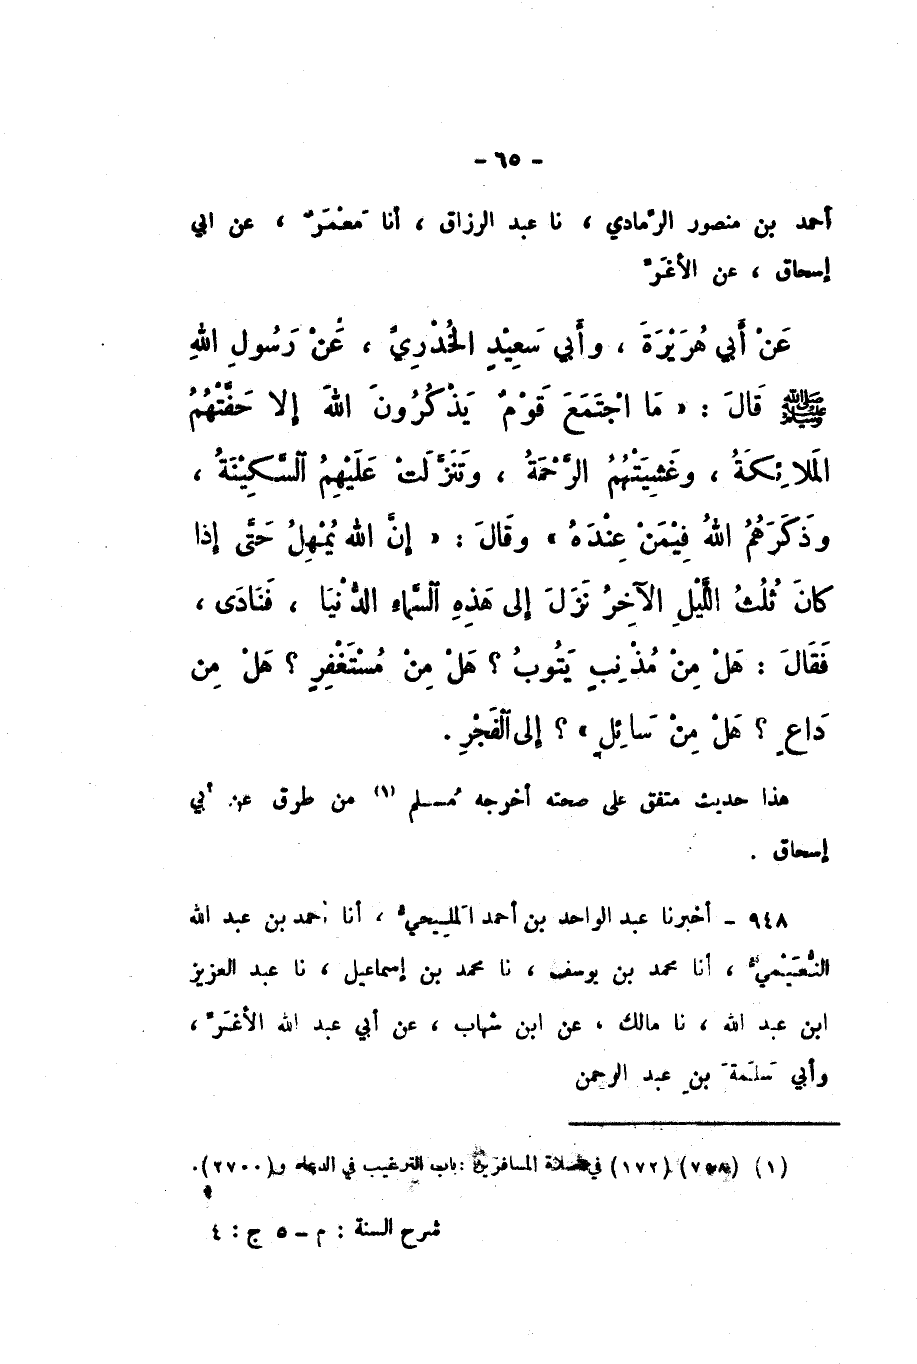 - ٦٥ -
أحمد بن منصور الرَّمادي ، نا عبد الرزاق ، أنا مَعْمَرٌ ، عن ابي
إسحاق ، عن الأغَرِّ
عَنْ أَبي هُرَيْرَةَ ، وأَبي سَعِيْدٍ الخُدْرِيِّ ، عَنْ رَسُولِ اللهِ
ﷺ قَالَ : « مَا اجْتَمَعَ قَوْمٌ يَذْكُرُونَ اللهَ إلا حَفَّتْهُمُ
المَلائِكَةُ ، وغَشِيَتْهُمُ الرَّحْمَةُ ، وتَنَزَّلَتْ عَلَيْهِمُ ٱلسَّكِيْنَةُ ،
وذَكَرَهُمُ اللهُ فِيْمَنْ عِنْدَهُ » وقَالَ : « إنَّ الله يُمْهِلُ حَتَّى إذا
كانَ ثُلُثُ اللَّيْلِ الآخِرُ نَزَلَ إلى هَذِهِ ٱلسَّماءِ الدُّنْيَا ، فَنَادَى ،
فَقَالَ : هَلْ مِنْ مُذْنِبٍ يَتُوبُ ؟ هَلْ مِنْ مُسْتَغْفِرٍ ؟ هَلْ مِن
دَاعٍ ؟ هَلْ مِنْ سَائِلٍ » ؟ إلى ٱلْفَجْرِ .
هذا حديث متفق على صحته أخرجه مُسلم (١) من طرق عن أبي
إسحاق .
٩٤٨ – أخبرنا عبد الواحد بن أحمد المَليحي ، أنا أحمد بن عبد الله
النُّعَيْمي ، أنا محمد بن يوسف ، نا محمد بن إسماعيل ، نا عبد العزيز
ابن عبد الله ، نا مالك ، عن ابن شهاب ، عن أبي عبد الله الأغَرِّ ،
وأبي سَلَمَةَ بنِ عبد الرحمن
(١) (٧٥٨) (١٧٢) في صلاة المسافرين : باب الترغيب في الدعاء و(٢٧٠٠).
شرح السنة : م – ٥ ج : ٤